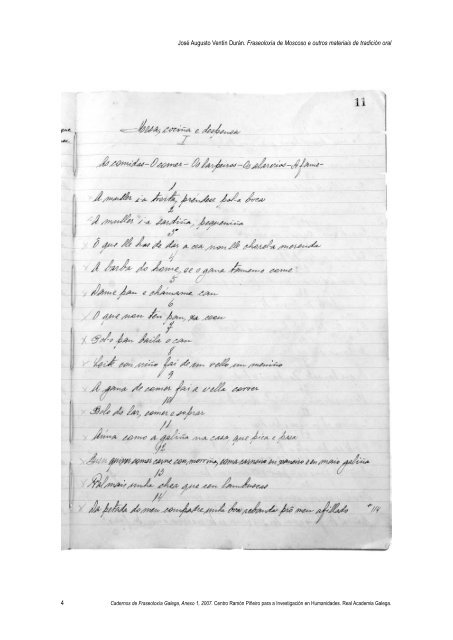 José Augusto Ventín Durán. Fraseoloxía de Moscoso e outros materiais de tradición oral
11
Mesa, cociña e despensa
I
As comidas - O comer - Os larpeiros - Os - A fame -
1
A muller i a troita, préndese pola boca
2
A muller i a sardiña, pequeniña
3
Ê que lle has de dar a cea non lle cherche merenda
4
A barba do home, se o gana tamén o come
5
Dame pan e chamame can
6
O que non ten pan, xa ceou
7
Polo pan baila o can
8
Leite con viño fai de un vello un meniño
9
A gana de comer fai a vella correr
10
Bolo do lar, comer e soprar
11
Anina como a galiña na casa, que pica e pasa
12
Quen comer carne con morriña, coma en xaneiro e en maio galiña
13
Pal mais unha chea que cen lambuscas
14
Da petada do meu compadre, unha boa rebanda pró meu afillado * 114
4
Cadernos de Fraseoloxía Galega, Anexo 1, 2007. Centro Ramón Piñeiro para a Investigación en Humanidades. Real Academia Galega.